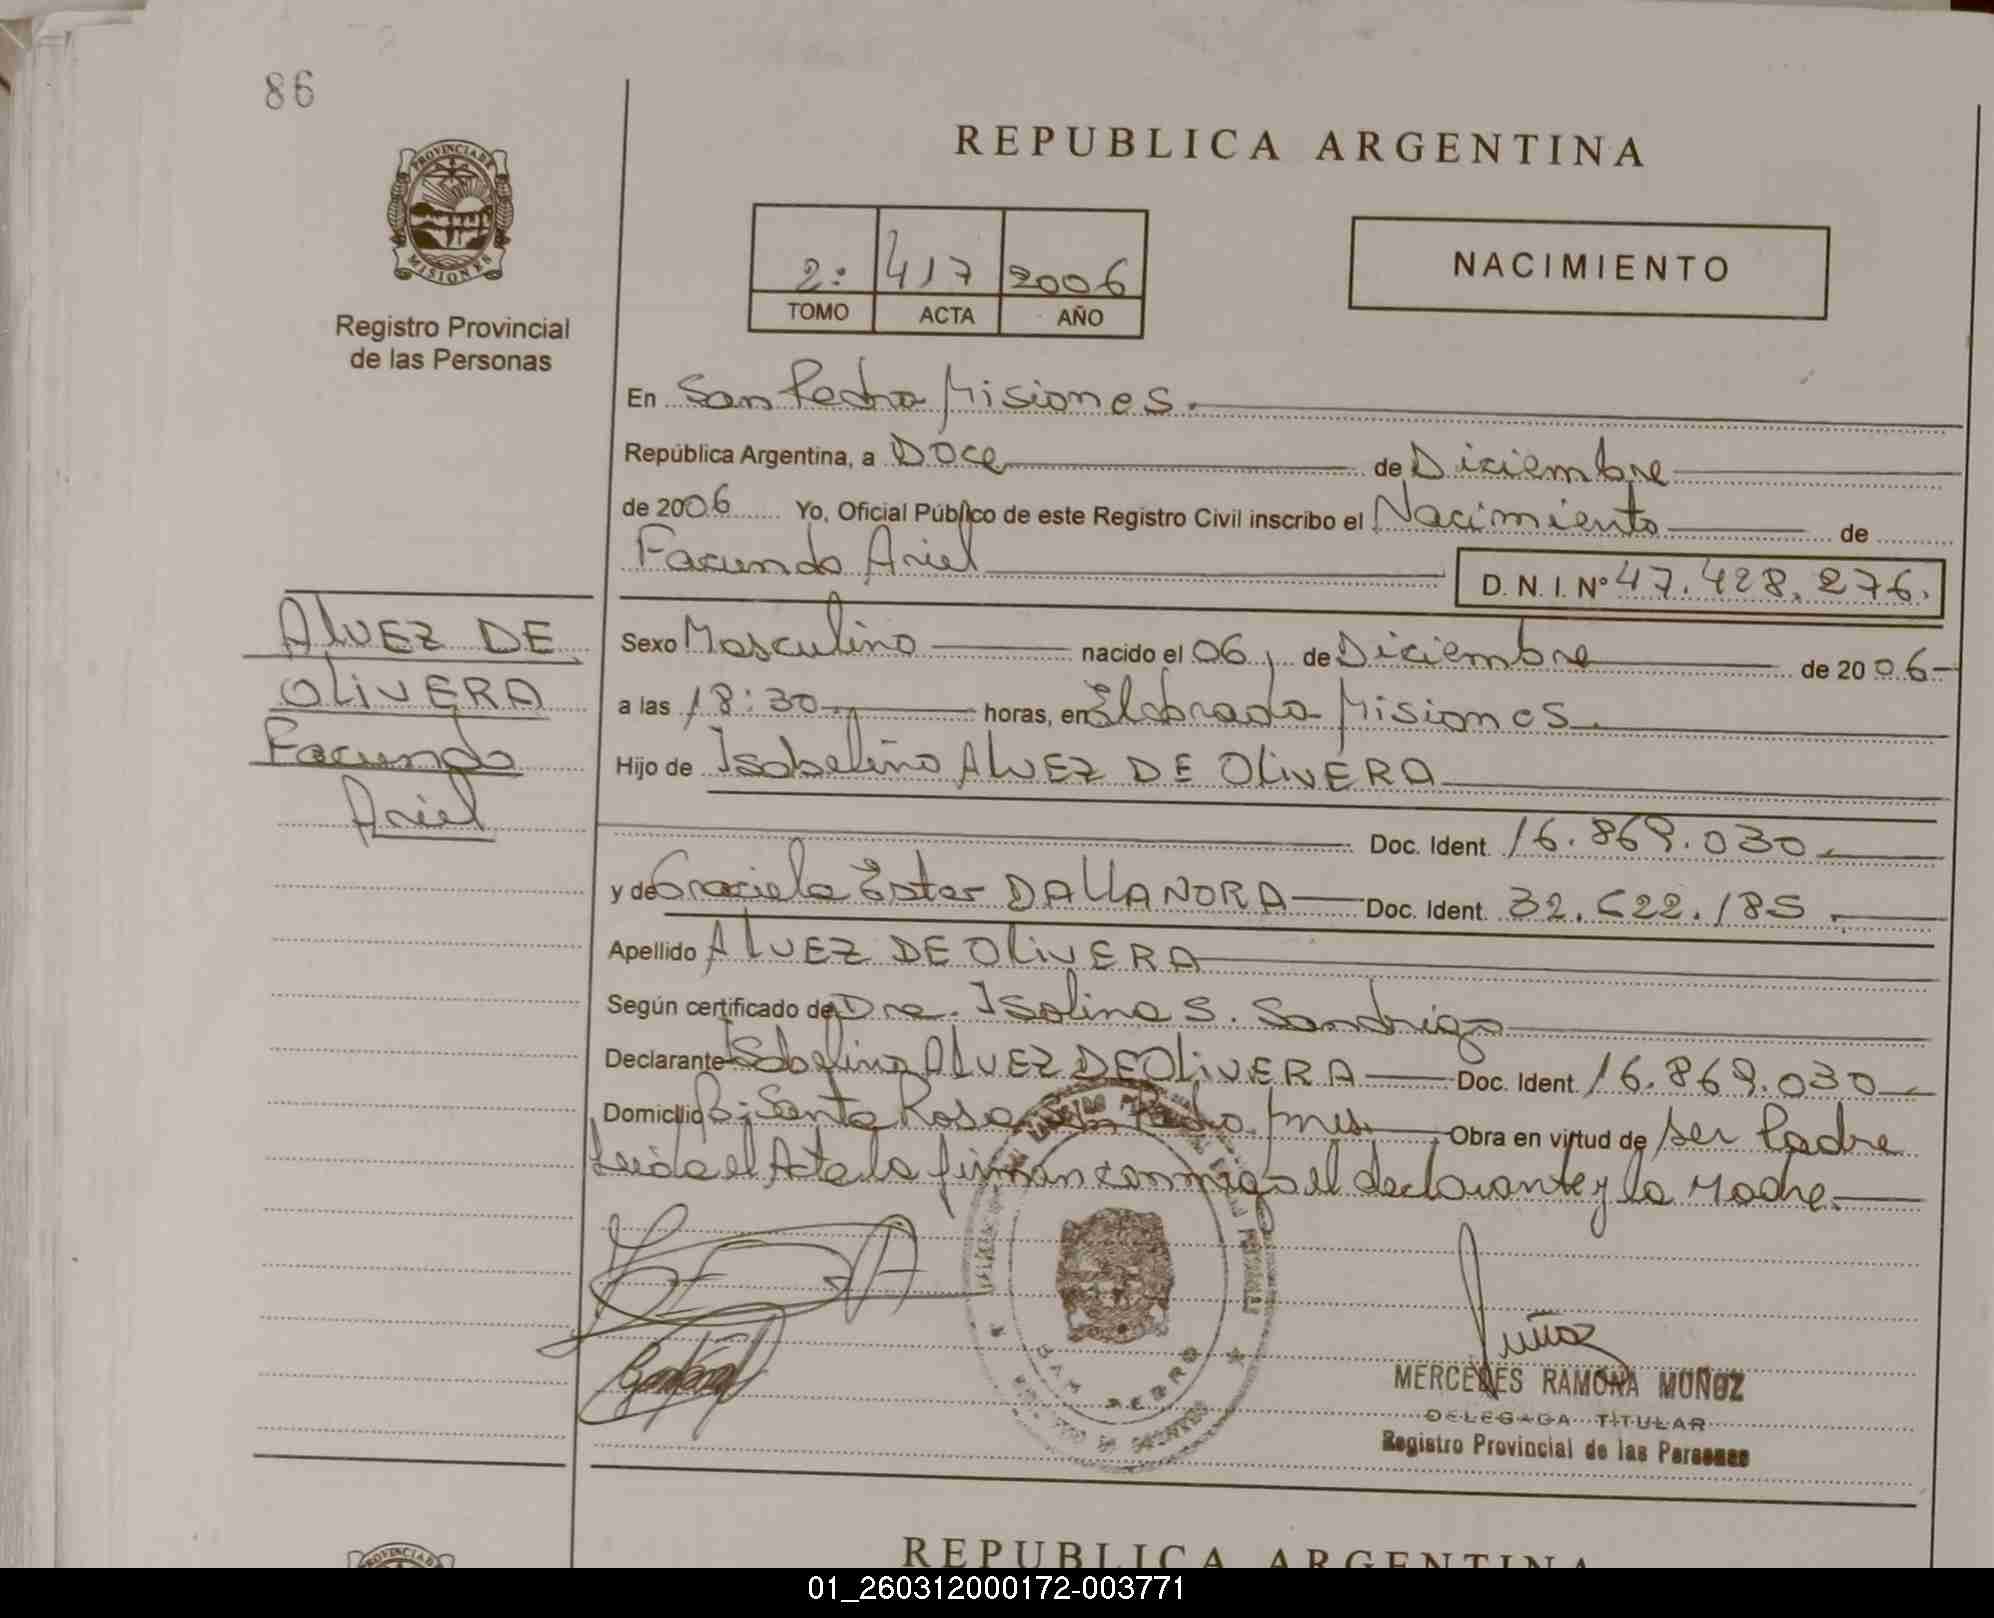 86
REPUBLICA ARGENTINA
PROVINCIA DE
MISIONES
Registro Provincial
de las Personas
2: 417 2006
TOMO ACTA AÑO
NACIMIENTO
En San Pedro Misiones.
República Argentina, a Doce de Diciembre
de 2006 Yo, Oficial Público de este Registro Civil inscribo el Nacimiento de
Facundo Ariel D. N. I. Nº 47.428.276.
ALVEZ DE
OLIVERA
Facundo
Ariel
Sexo Masculino nacido el 06 de Diciembre de 2006
a las 18:30 horas, en Eldorado Misiones.
Hijo de Isabelino ALVEZ DE OLIVERA
Doc. Ident. 16.869.030
y de Graciela Ester DALLANORA Doc. Ident. 32.622.185
Apellido ALVEZ DE OLIVERA
Según certificado de Dra. Isolina S. Sandrigo
Declarante Isabelino ALVEZ DE OLIVERA Doc. Ident. 16.869.030
Domicilio B: Santa Rosa San Pedro mnes. Obra en virtud de ser Padre
Leida el Acta la firman conmigo el declarante y la Madre.
SAN PEDRO
Muñoz
MERCEDES RAMONA MUÑOZ
DELEGADA TITULAR
Registro Provincial de las Personas
PROVINCIA DE
REPUBLICA ARGENTINA
01_260312000172-003771